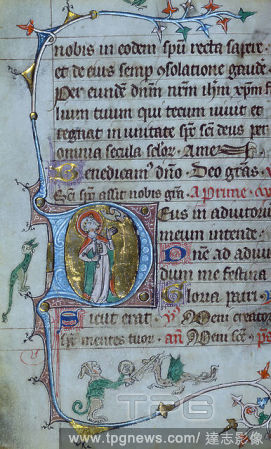 nobis in eodem spu recta sapere
et de eius semp osolatione gaude
Per eundem dnm nrm ihm xpm fi
lium tuum qui tecum uiuit et
regnat in unitate spc sci deus per
omnia secula seclor Ame
Benedicam dno Deo gras
Sci spc assit nobis gra A prime
Deus in adiutoriu
meum intende
Dne ad adiuua
dum me festina
Gloria patri
Sicut erat Veni creator
spc mentes tuor an Veni sce
TPG
www.tpgnews.com/達志影像